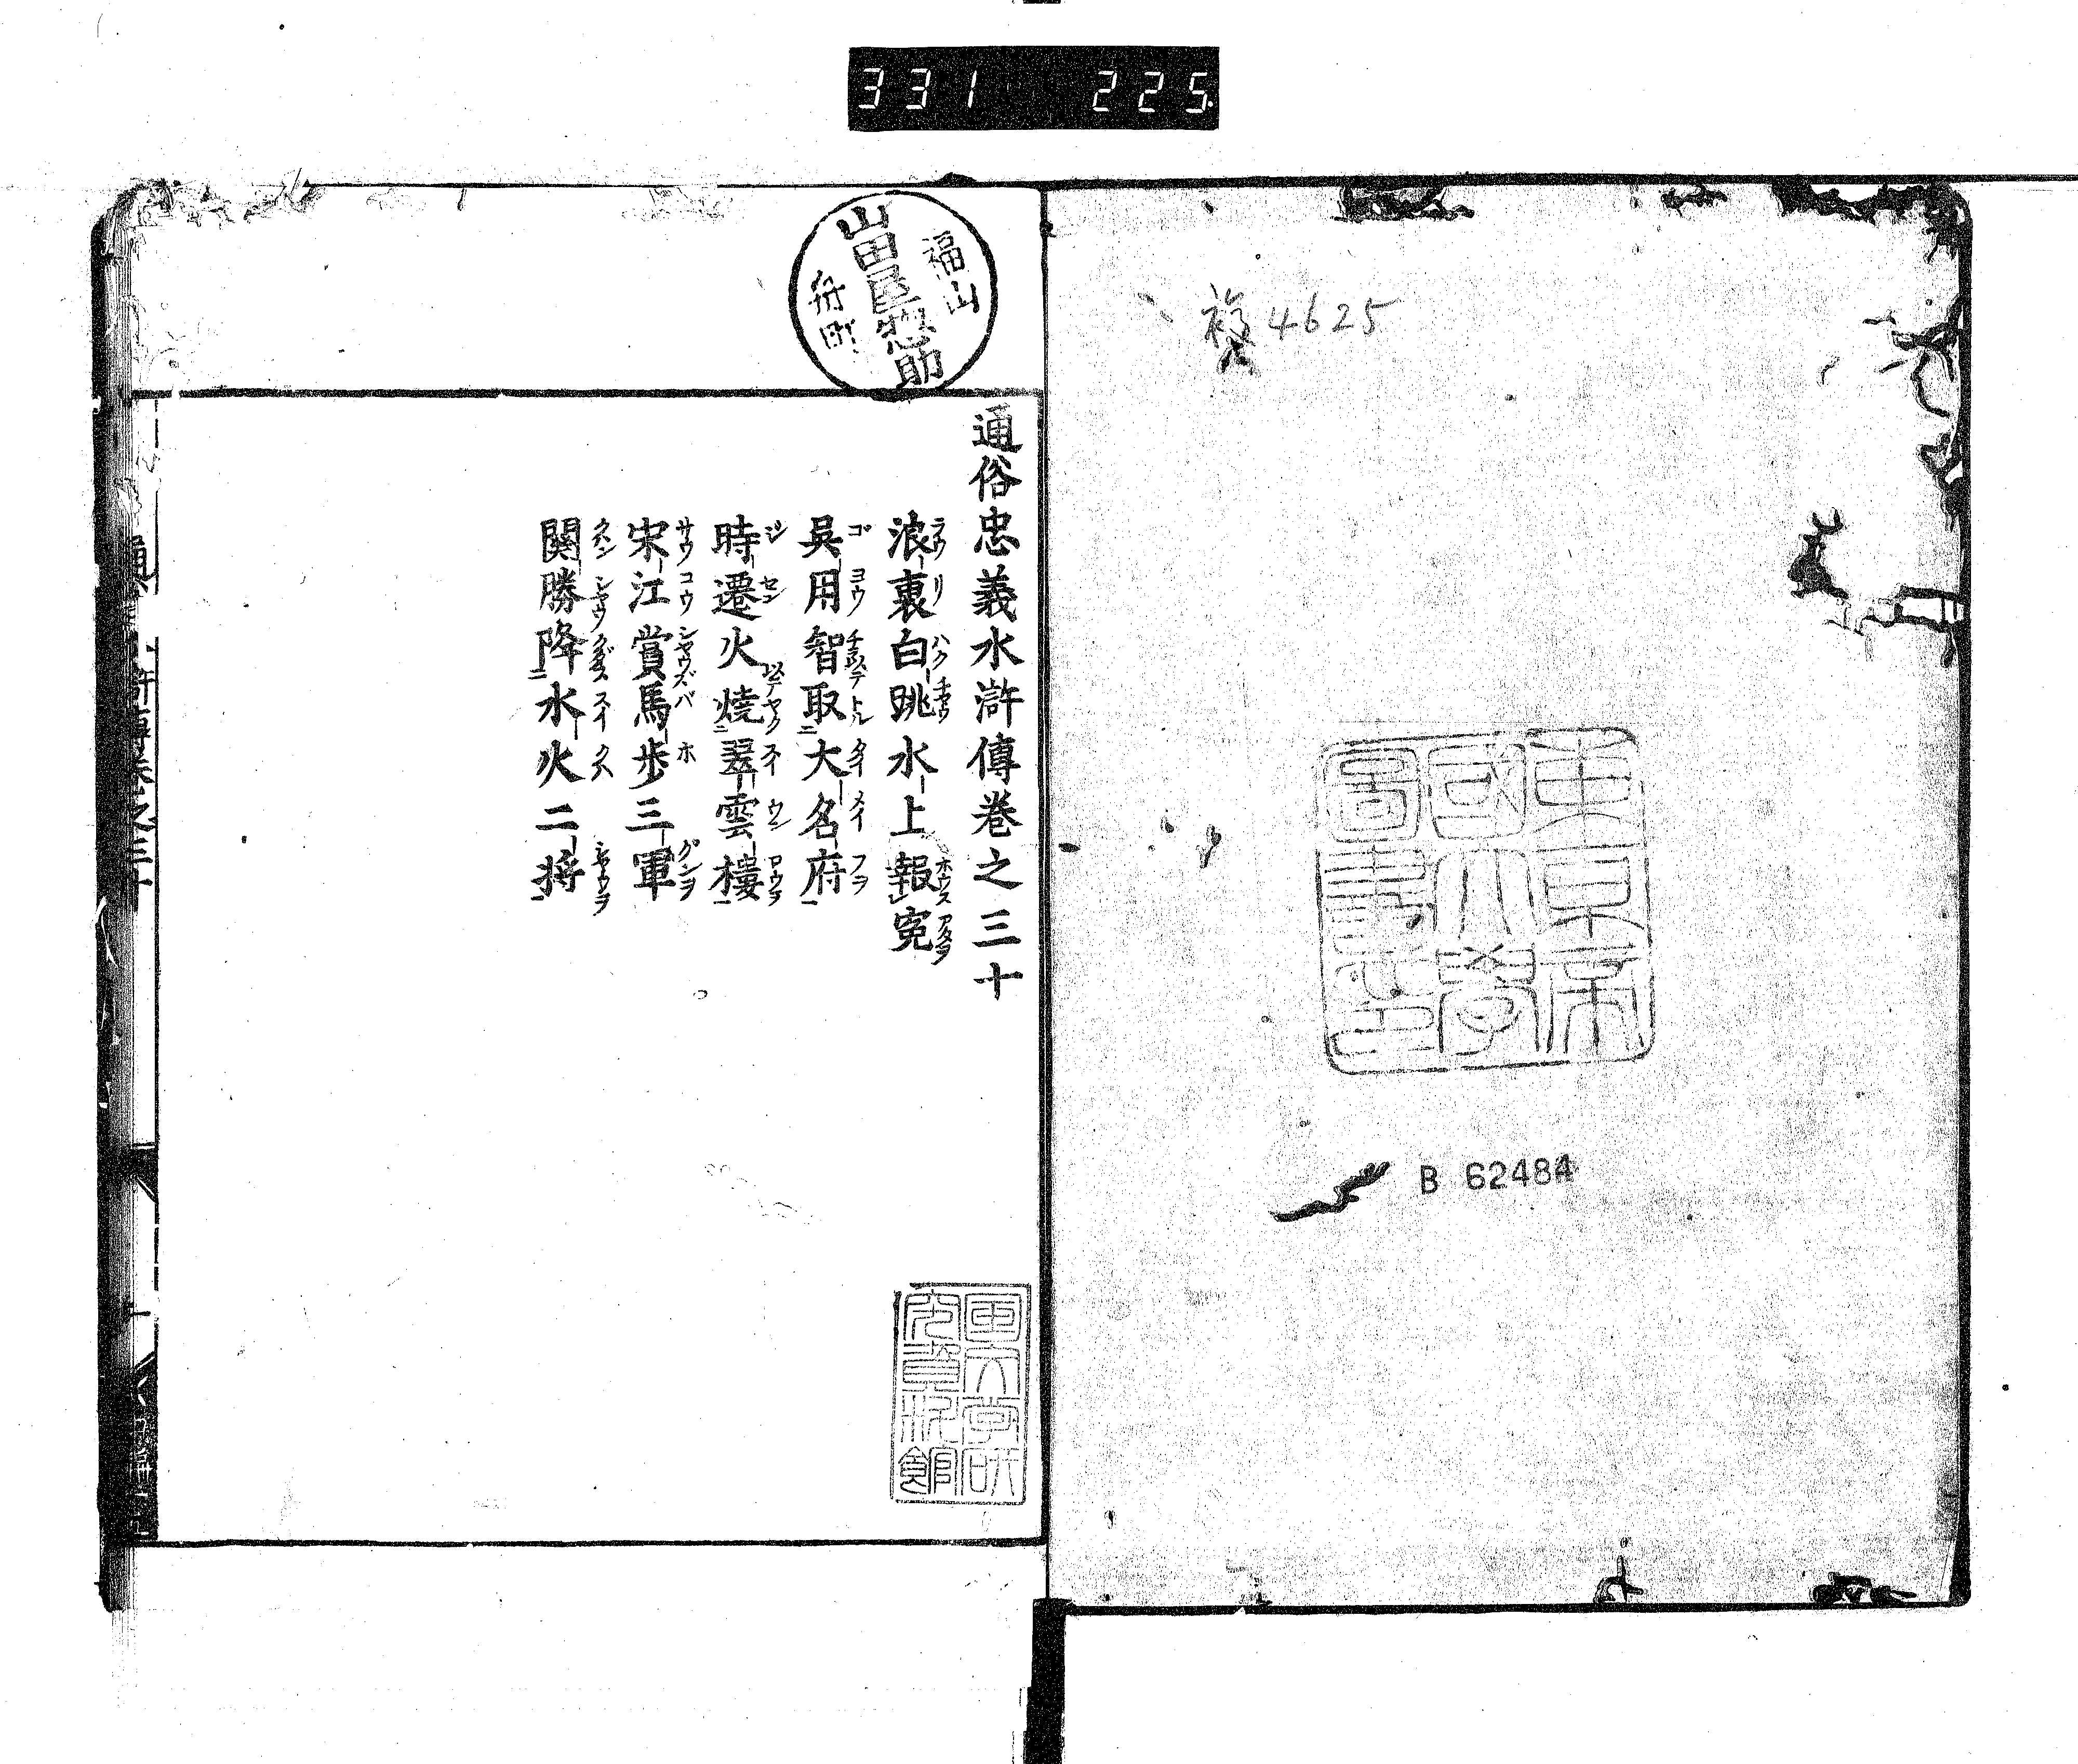 331 225
4625
東京帝
國大學
圖書印
B 62484
福山
山田屋惣助
舟町
通俗忠義水滸傳巻之三十
浪裏白跳水上報寃
吳用智取大名府
時遷火燒翠雲樓
宋江賞馬歩三軍
關勝降水火二将
国文学研
究資料館